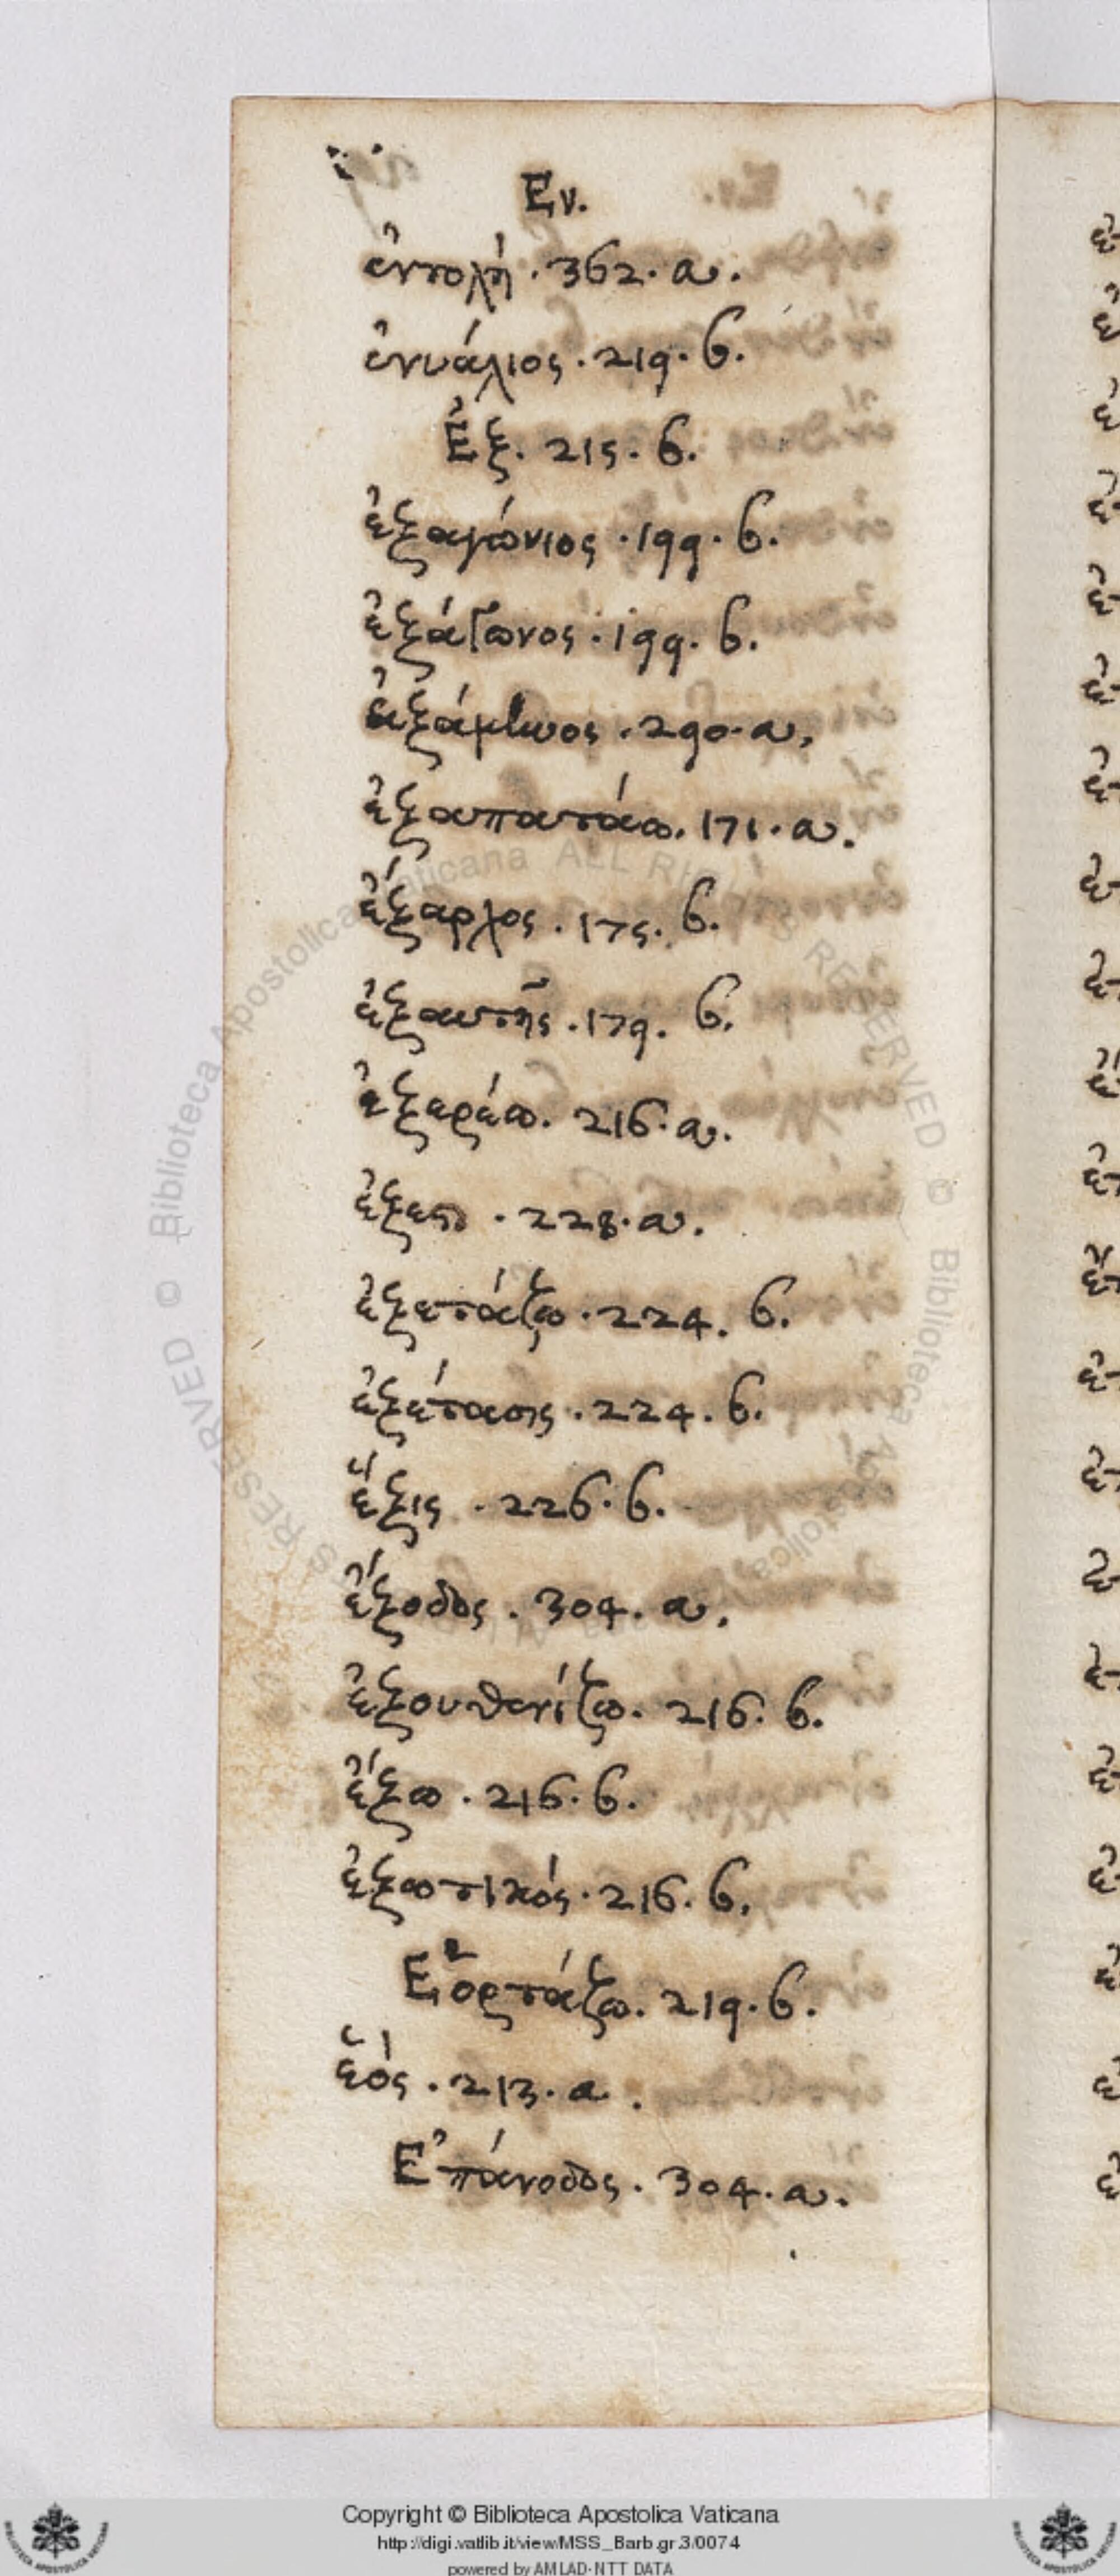 Εν.
ἐντολή . 362. a.
ἐνυάλιος . 219. b.
Ἐξ. 215. b.
ἐξαγώνιος . 199. b.
ἐξάγωνος . 199. b.
ἑξάμηνος . 290. a,
ἐξαπατάω. 171. a.
ἔξαρχος . 175. b.
ἐξαυτῆς . 179. b.
ἐξερέω. 216. a.
. 228. a.
ἐξετάζω . 224. b.
ἐξέτασις . 224. b.
ἕξις . 226. b.
ἔξοδος . 304. a.
ἐξουθενίζω. 216. b.
ἔξω . 216. b.
ἐξωτικός . 216. b.
Ἑορτάζω. 219. b.
ἑός . 213. a.
Ἐπάνοδος . 304. a.
© Biblioteca Apostolica Vaticana ALL RIGHTS RESERVED
Copyright © Biblioteca Apostolica Vaticana
http://digi.vatlib.it/view/MSS_Barb.gr.3/0074
powered by AMLAD-NTT DATA